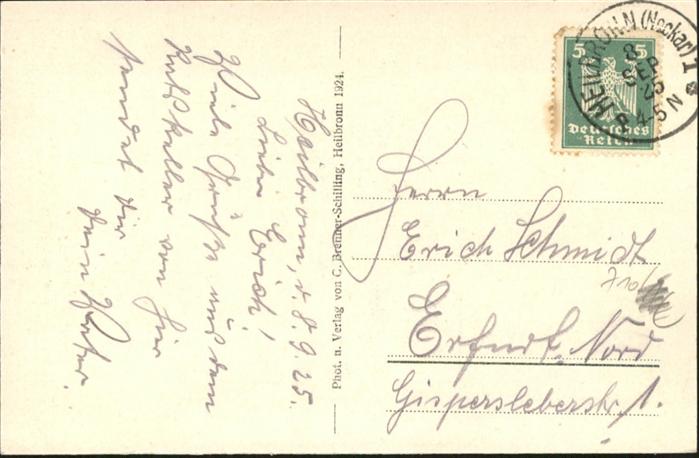 Heilbronn, d. 8.9.25.
Lieber Erich!
Viele Grüße aus dem
Ratskeller von hier
sendet Dir
Dein Vater.
Phot. u. Verlag von C. Brenner-Schilling, Heilbronn 1924.
HEILBRONN (Neckar) 1
8
SEP
25
4-5 N
5 5
Deutsches
Reich
Herrn
Erich Schmidt
Erfurt-Nord
Gispersleberstr. 1.